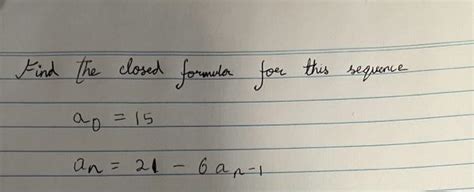 Find the closed formula foer this sequence
a₀ = 15
aₙ = 21 - 6aₙ₋₁